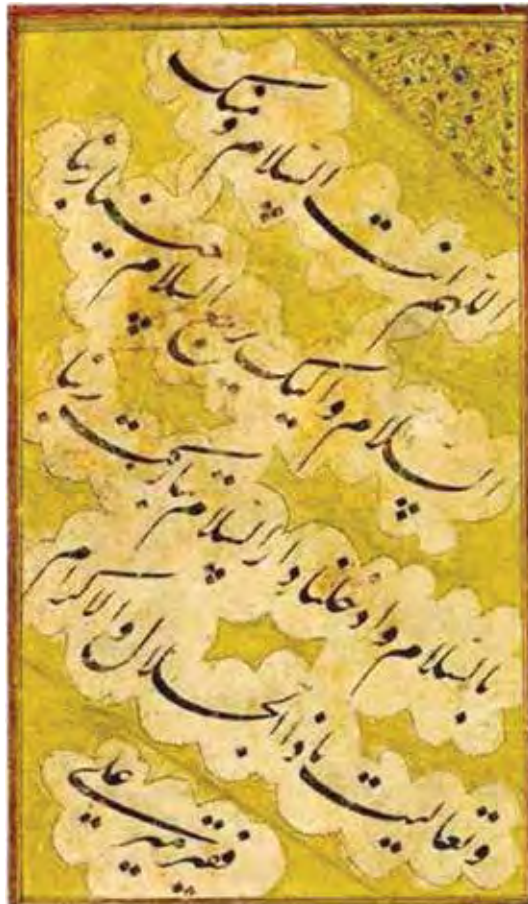 اللهم انت السلام و منک
السلام و الیک یرجع السلام حینا ربنا
بالسلام و ادخلنا دار السلام تبارکت ربنا
و تعالیت یا ذا الجلال و الاکرام
فقیر میر علی